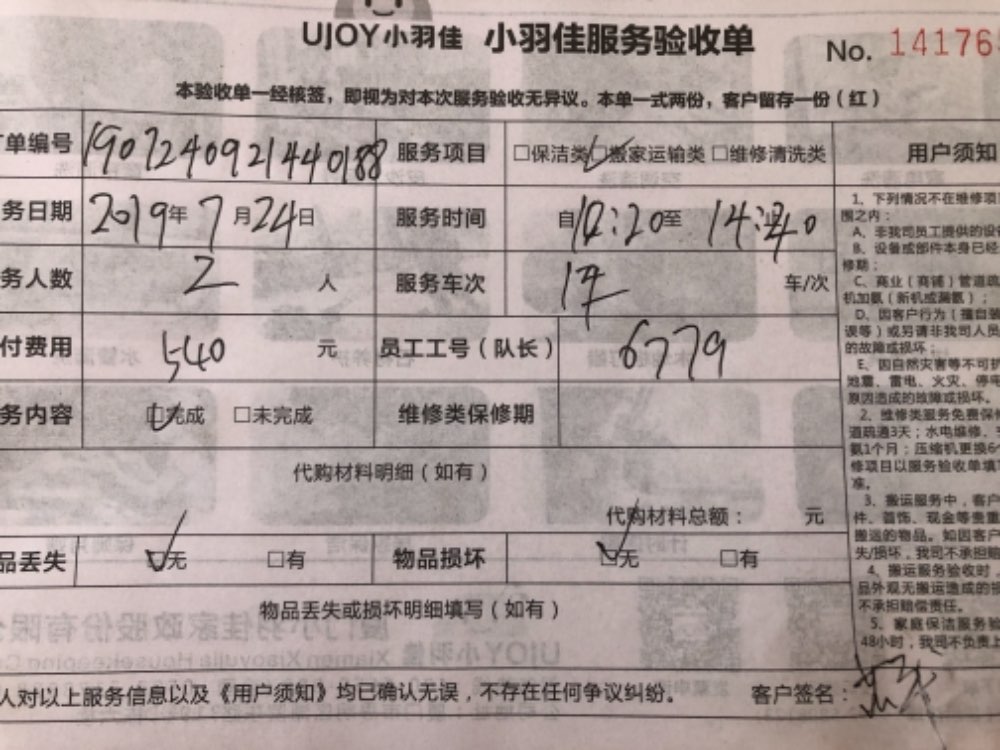 UJOY小羽佳 小羽佳服务验收单 No. 14176
本验收单一经核签，即视为对本次服务验收无异议。本单一式两份，客户留存一份（红）
单编号 1907240921440188 服务项目 □保洁类 □搬家运输类 □维修清洗类 用户须知
务日期 2019年7月24日 服务时间 自12:20至14:40
务人数 2 人 服务车次 1车 车/次
付费用 540 元 员工工号（队长） 6779
务内容 □完成 □未完成 维修类保修期
代购材料明细（如有）
代购材料总额： 元
品丢失 □无 □有 物品损坏 □无 □有
物品丢失或损坏明细填写（如有）
人对以上服务信息以及《用户须知》均已确认无误，不存在任何争议纠纷。 客户签名：
1、下列情况不在维修项
围之内：
A、非我司员工提供的设
B、设备或部件本身已经
修期；
C、商业（商铺）管道疏
机加氨（新机或漏氨）；
D、因客户行为（擅自装
误等）或另请非我司人员
的故障或损坏；
E、因自然灾害等不可抗
地震、雷电、火灾、停电
原因造成的故障或损坏。
2、维修类服务免费保修
道疏通3天；水电维修、
氨1个月；压缩机更换6个
修项目以服务验收单填写
准。
3、搬运服务中，客户
件、首饰、现金等贵重
搬运的物品。如因客户
失/损坏，我司不承担赔
4、搬运服务验收时，
品外观无搬运造成的
不承担赔偿责任。
5、家庭保洁服务验
48小时，我司不负责上